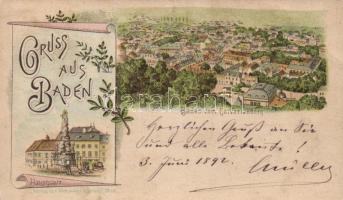 GRUSS
AUS
BADEN
Baden vom Calvarienberg
Hauptplatz
Herzlichen Gruß an Sie
und alle
3. Juni 1892.